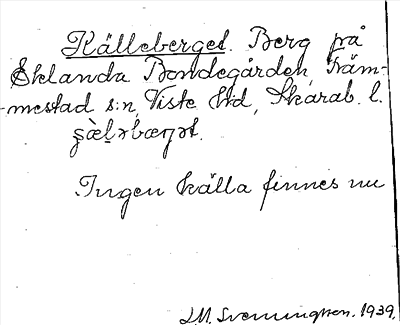 Källeberget. Berg på
Eklanda Bondegården, Främ-
-mestad s:n, Viste hd, Skarab. l.
Ingen källa finnes nu
J.M. Svenningson. 1939.